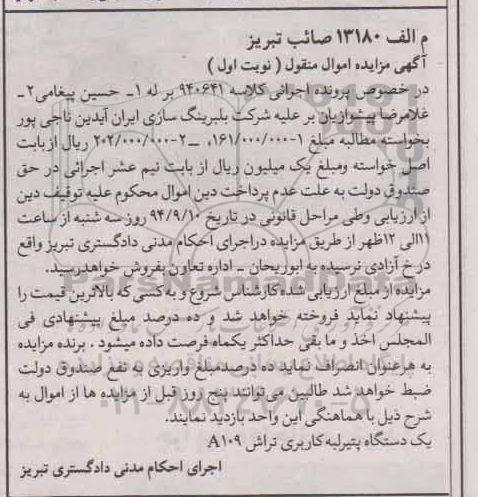 م الف ۱۳۱۸۰ صائب تبریز
آگهی مزایده اموال منقول ( نوبت اول )
در خصوص پرونده اجرائی کلاسه ۹۴۰۶۴۱ بر له ۱- حسین پیغامی ۲-
غلامرضا پیشوازیان بر علیه شرکت بلبرینگ سازی ایران آیدین ناجی پور
بخواسته مطالبه مبلغ ۱-۱۶۱/۰۰۰/۰۰۰، ـ۲-۲۰۲/۰۰۰/۰۰۰ ریال از بابت
اصل خواسته ومبلغ یک میلیون ریال از بابت نیم عشر اجرائی در حق
صندوق دولت به علت عدم پرداخت دین اموال محکوم علیه توقیف دین
از ارزیابی وطی مراحل قانونی در تاریخ ۹۴/۹/۱۰ روز سه شنبه از ساعت
۱۱الی ۱۲ظهر از طریق مزایده دراجرای احکام مدنی دادگستری تبریز واقع
در خ آزادی نرسیده به ابوریحان ـ اداره تعاون بفروش خواهدرسید.
مزایده از مبلغ ارزیابی شده کارشناس شروع و به کسی که بالاترین قیمت را
پیشنهاد نماید فروخته خواهد شد و ده درصد مبلغ پیشنهادی فی
المجلس اخذ و ما بقی حداکثر یکماه فرصت داده میشود . برنده مزایده
به هر عنوان انصراف نماید ده درصدمبلغ واریزی به نفع صندوق دولت
ضبط خواهد شد طالبین می توانند پنج روز قبل از مزایده ها از اموال به
شرح ذیل با هماهنگی این واحد بازدید نمایند.
یک دستگاه پتیرلبه کاربری تراش A۱۰۹
اجرای احکام مدنی دادگستری تبریز
ParsNamadData
۰۲۱-۸۸۳۴۹۶۷۰-۵